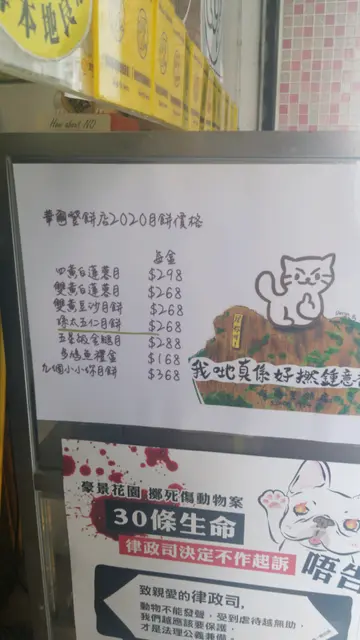 本地良
How about NO
華爾登餅店2020月餅價格
盒金
四黃白蓮蓉月 $298
雙黃白蓮蓉月 $268
雙黃豆沙月餅 $268
陳太五仁月餅 $268
五星級金腿月 $288
多啦魚禮盒 $168
九個小小你月餅 $368
我哋真係好撚鍾意
豪景花園 擲死傷動物案
30條生命
律政司決定不作起訴
唔告
致親愛的律政司,
動物不能發聲,受到虐待越無助,
我們越應該要保護,
才是法理公義兼備